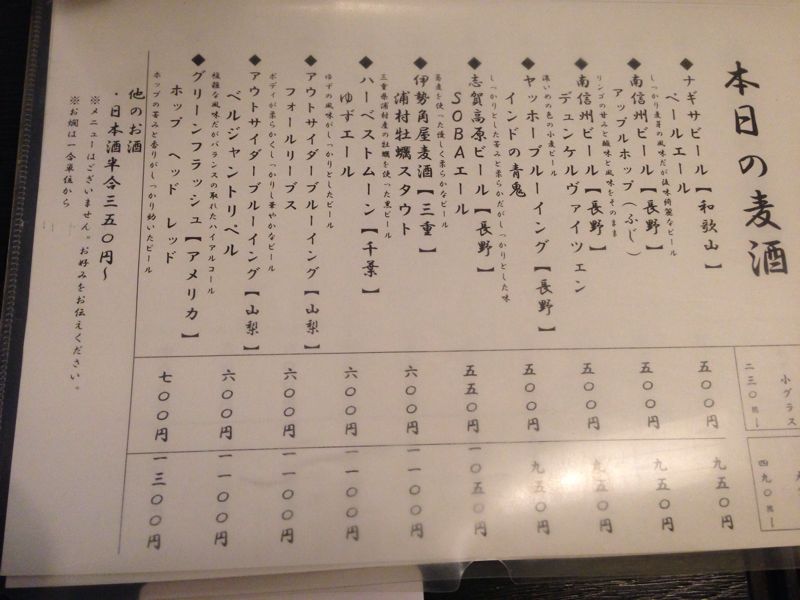 本日の麦酒
小グラス
二三〇㎖
四九〇㎖
◆ナギサビール【和歌山】
ペールエール
しっかり麦芽の風味だが後味綺麗なビール
五〇〇円
九五〇円
◆南信州ビール【長野】
アップルホップ(ふじ)
リンゴの甘みと酸味と風味をそのまま
五〇〇円
九五〇円
◆南信州ビール【長野】
デュンケルヴァイツェン
濃いめの色の小麦ビール
五〇〇円
九五〇円
◆ヤッホーブルーイング【長野】
インドの青鬼
しっかりとした苦みと柔らかだがしっかりとした味
五〇〇円
九五〇円
◆志賀高原ビール【長野】
SOBAエール
蕎麦を使った優しく柔らかなビール
五五〇円
一〇五〇円
◆伊勢角屋麦酒【三重】
浦村牡蠣スタウト
三重県浦村産の牡蠣を使った黒ビール
六〇〇円
一一〇〇円
◆ハーベストムーン【千葉】
ゆずエール
ゆずの風味がしっかりとしたビール
六〇〇円
一一〇〇円
◆アウトサイダーブルーイング【山梨】
フォールリーブス
ボディが柔らかくしっかりし華やかなビール
六〇〇円
一一〇〇円
◆アウトサイダーブルーイング【山梨】
ベルジャントリペル
複雑な風味だがバランスの取れたハイアルコール
六〇〇円
一一〇〇円
◆グリーンフラッシュ【アメリカ】
ホップ ヘッド レッド
ホップの苦みと香りがしっかり効いたビール
七〇〇円
一三〇〇円
他のお酒
・日本酒半合三五〇円〜
※メニューはございません。お好みをお伝えください。
※お燗は一合単位から